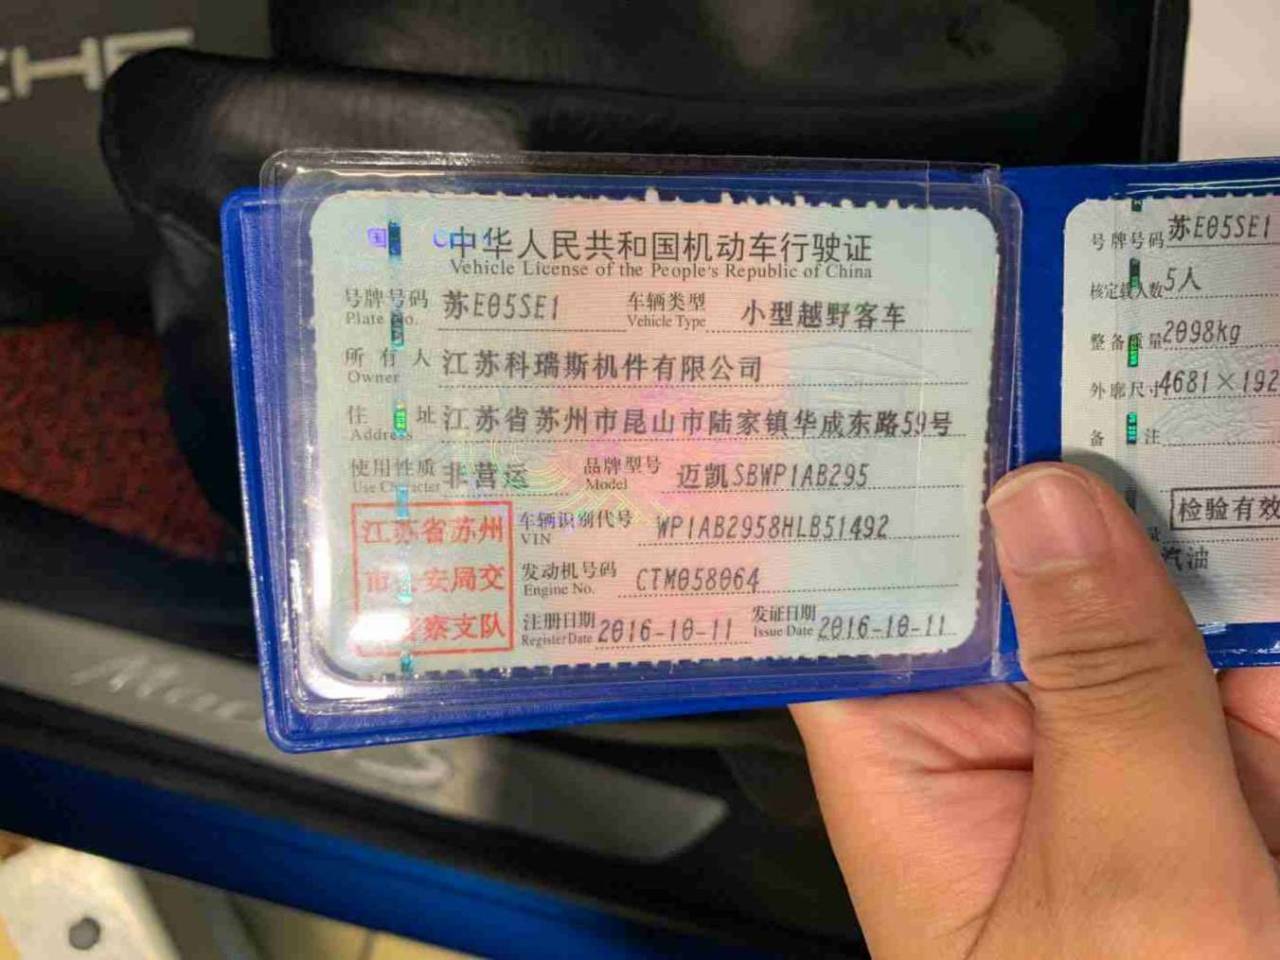 中华人民共和国机动车行驶证
Vehicle License of the People's Republic of China
号牌号码 苏E05SE1 车辆类型 小型越野客车
Plate No. Vehicle Type
所有人 江苏科瑞斯机件有限公司
Owner
住址 江苏省苏州市昆山市陆家镇华成东路59号
Address
使用性质 非营运 品牌型号 迈凯SBWP1AB295
Use Character Model
车辆识别代号 WP1AB2958HLB51492
VIN
发动机号码 CTM058064
Engine No.
注册日期 2016-10-11 发证日期 2016-10-11
Register Date Issue Date
江苏省苏州
市公安局交
警察支队
号牌号码 苏E05SE1
核定载人数 5人
整备质量 2098kg
外廓尺寸 4681×192
备注
检验有效
汽油